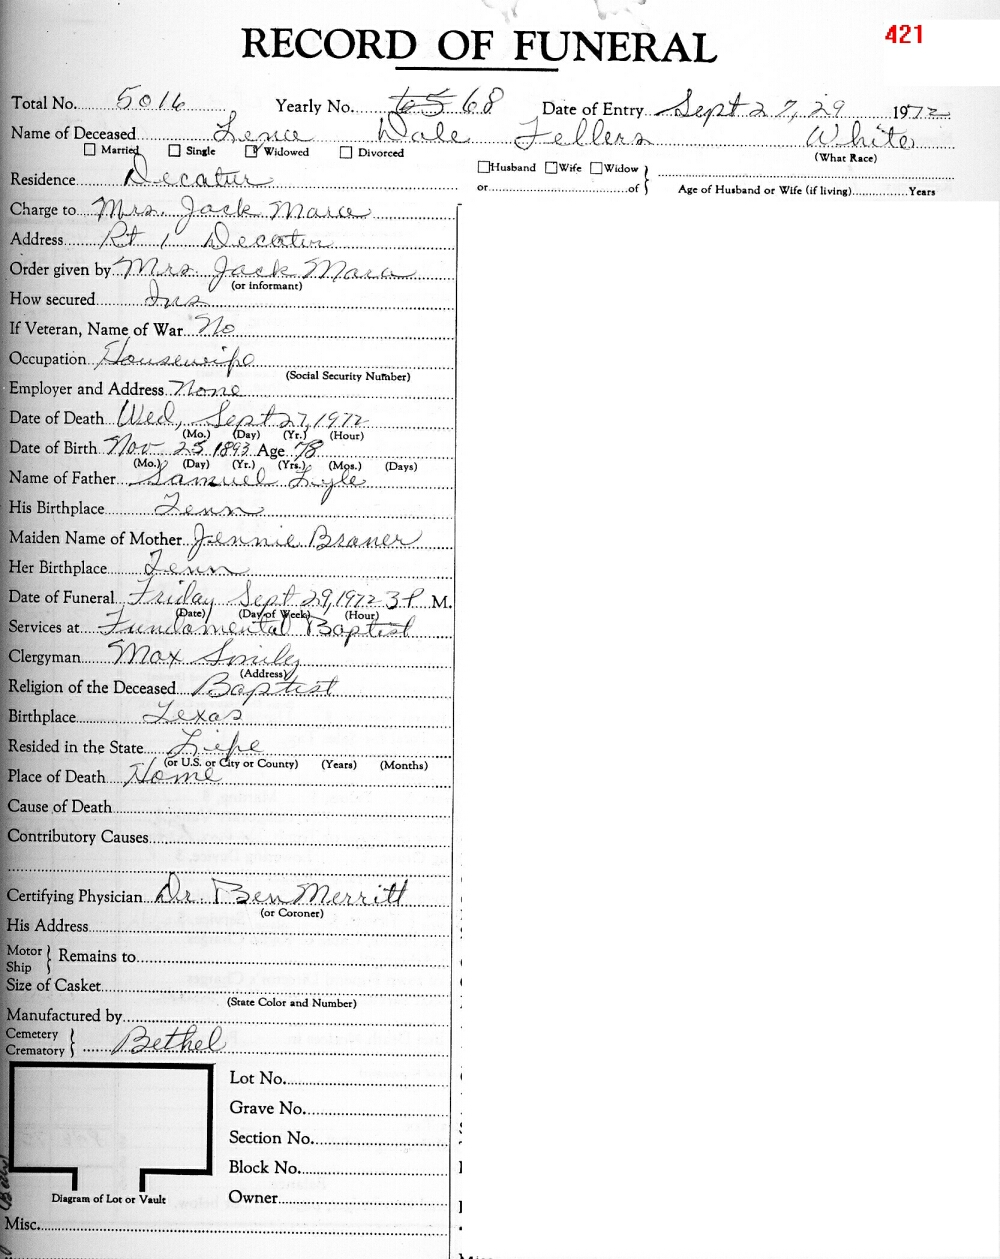 RECORD OF FUNERAL
421
Total No. 5016 Yearly No. 65 68 Date of Entry Sept 27, 29 1972
Name of Deceased Dale Fellers White
☐ Married ☐ Single ☑ Widowed ☐ Divorced (What Race)
☐ Husband ☐ Wife ☐ Widow
Residence Decatur or of Age of Husband or Wife (if living) Years
Charge to Mrs. Jack
Address Rt 1 Decatur
Order given by Mrs. Jack
(or informant)
How secured Ins
If Veteran, Name of War No
Occupation Housewife
(Social Security Number)
Employer and Address None
Date of Death Wed, Sept 27, 1972
(Mo.) (Day) (Yr.) (Hour)
Date of Birth Nov 25 1893 Age 78
(Mo.) (Day) (Yr.) (Yrs.) (Mos.) (Days)
Name of Father Samuel Lyle
His Birthplace Tenn
Maiden Name of Mother Jennie Braner
Her Birthplace Tenn
Date of Funeral Friday Sept 29, 1972 3 P M.
(Date) (Day of Week) (Hour)
Services at Fundamental Baptist
Clergyman Max
(Address)
Religion of the Deceased Baptist
Birthplace Texas
Resided in the State Life
(or U.S. or City or County) (Years) (Months)
Place of Death Home
Cause of Death
Contributory Causes
Certifying Physician Dr. Ben Merritt
(or Coroner)
His Address
Motor
Ship Remains to
Size of Casket
(State Color and Number)
Manufactured by
Cemetery
Crematory Bethel
Lot No.
Grave No.
Section No.
Block No.
Diagram of Lot or Vault Owner
Misc.